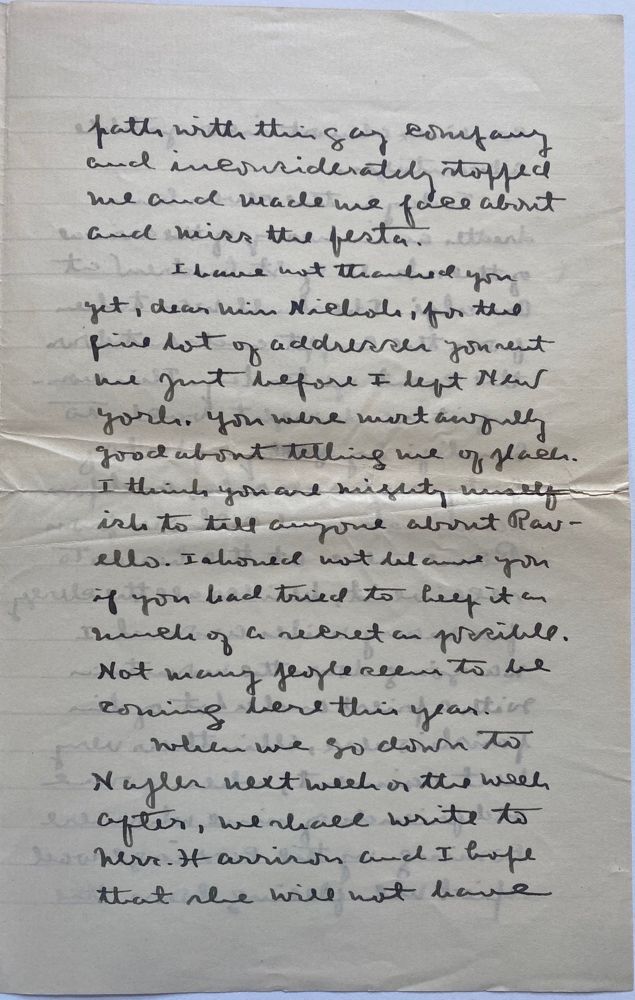 path with this gay company
and inconsiderately stopped
me and made me face about
and miss the festa.
I have not thanked you
yet, dear Miss Nichols, for the
fine lot of addresses you sent
me just before I left New
York. You were most awfully
good about telling me of places.
I think you are mighty unself-
ish to tell anyone about Rav-
ello. I should not blame you
if you had tried to keep it as
much of a secret as possible.
Not many people seem to be
coming here this year.
When we go down to
Naples next week or the week
after, we shall write to
Mrs. Harrison and I hope
that she will not have